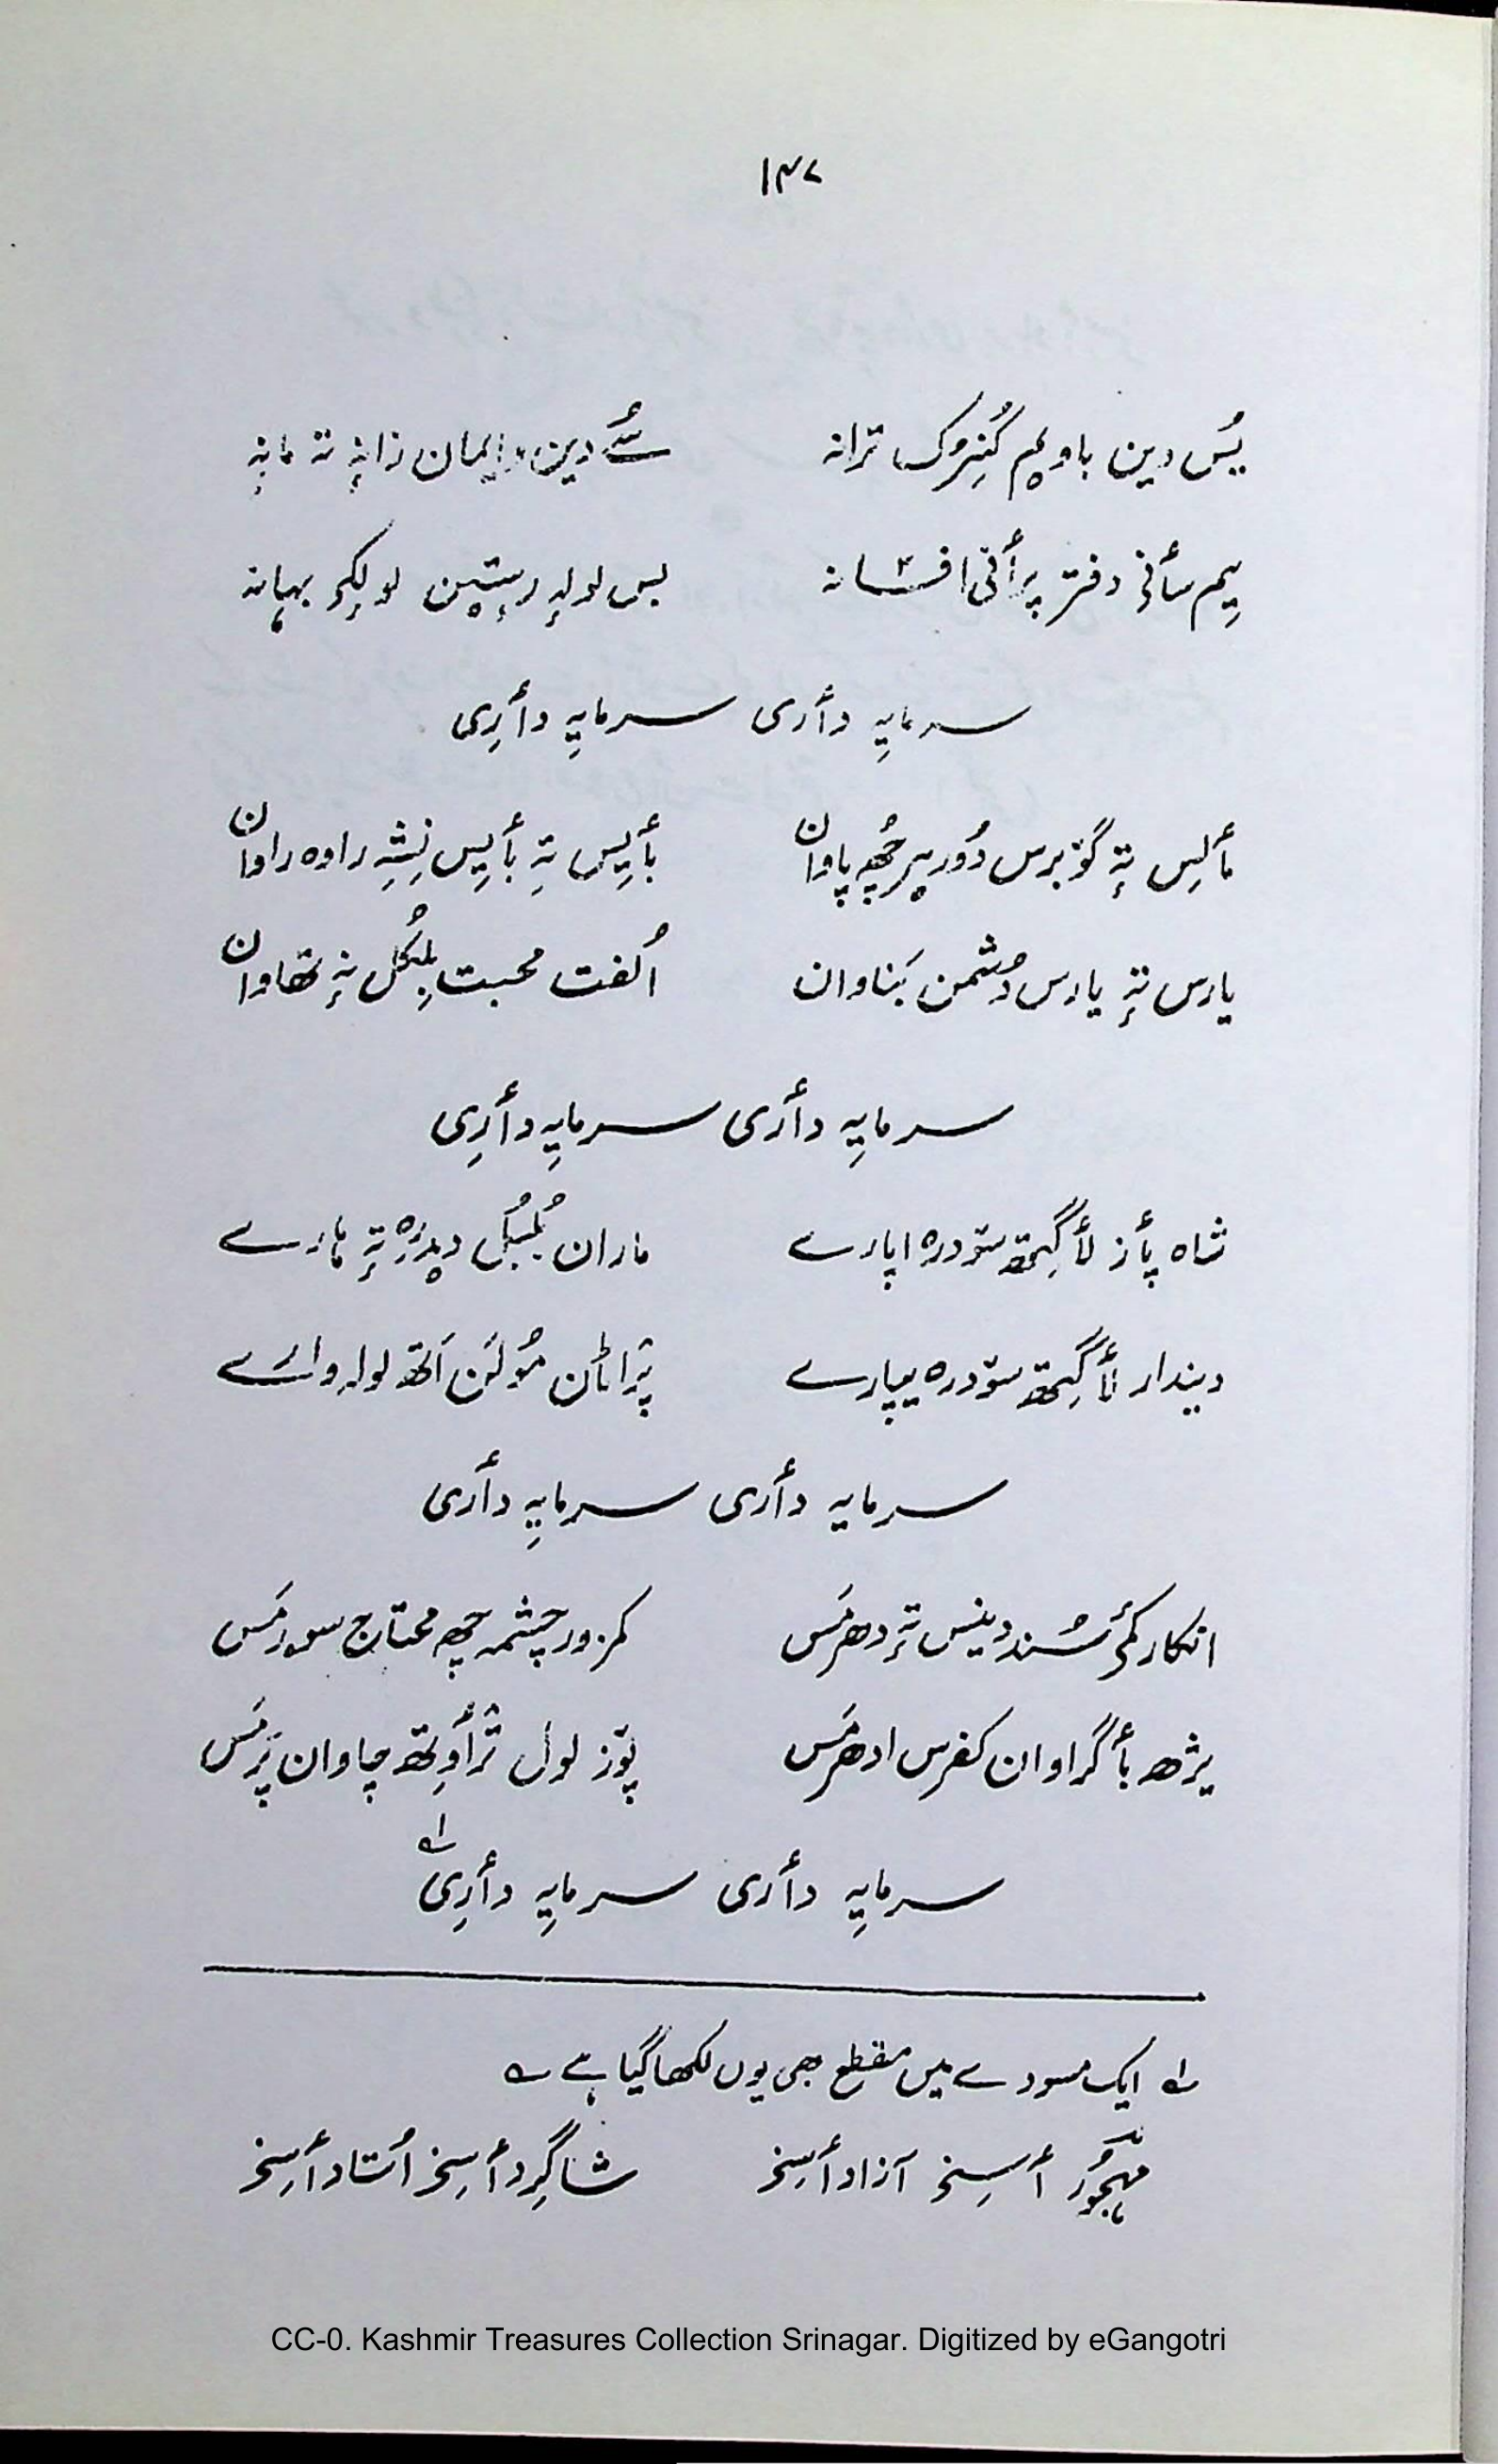 ۱۴۷
یُس دین باوِیہِ کُنِرُک ترانہ سُے دین و ایمان زانہٕ تہ مانہٕ
یِم سٲنی دفتر پرٲنی افسانہ بس لولہٕ رٕستین لولُکہِ بہانہ
سرمایہِ دٲری سرمایہِ دٲری
مٲلِس تہٕ گوٚبرس دُوریر چھُہ پاوان بٲیِس تہٕ بٲیِس نِشہِ راوہ راوان
یارس تہٕ یارس دُشمن بَناوان اُلفت محبت بِلکُل نہٕ تھاوان
سرمایہِ دٲری سرمایہِ دٲری
شاہ پٲز لٲگِتھ سوٚدرہ اپارے ماران بُلبُل دیدرٕہ تہٕ ہارے
دیندار لٲگِتھ سوٚدرہ یپارے پَراٹان مُولَن اَتھ لولہ وارے
سرمایہ دٲری سرمایہِ دٲری
انکار کمۍ سُند دینس تہٕ دھرمَس کمزور چشمہ چھِ محتاج سورمَس
یژھ بٲگراوان کفرس ادھرمَس پوٚز لول ترٛٲوِتھ چاوان برَمَس
سرمایہِ دٲری سرمایہِ دٲری ؎۱
؎۱ ایک مسودے میں مقطع بھی یوں لکھا گیا ہے ؎
مہجُور ٲسِتن آزاد ٲسِتن شاگِرد ٲسِتن اُستاد ٲسِتن
CC-0. Kashmir Treasures Collection Srinagar. Digitized by eGangotri